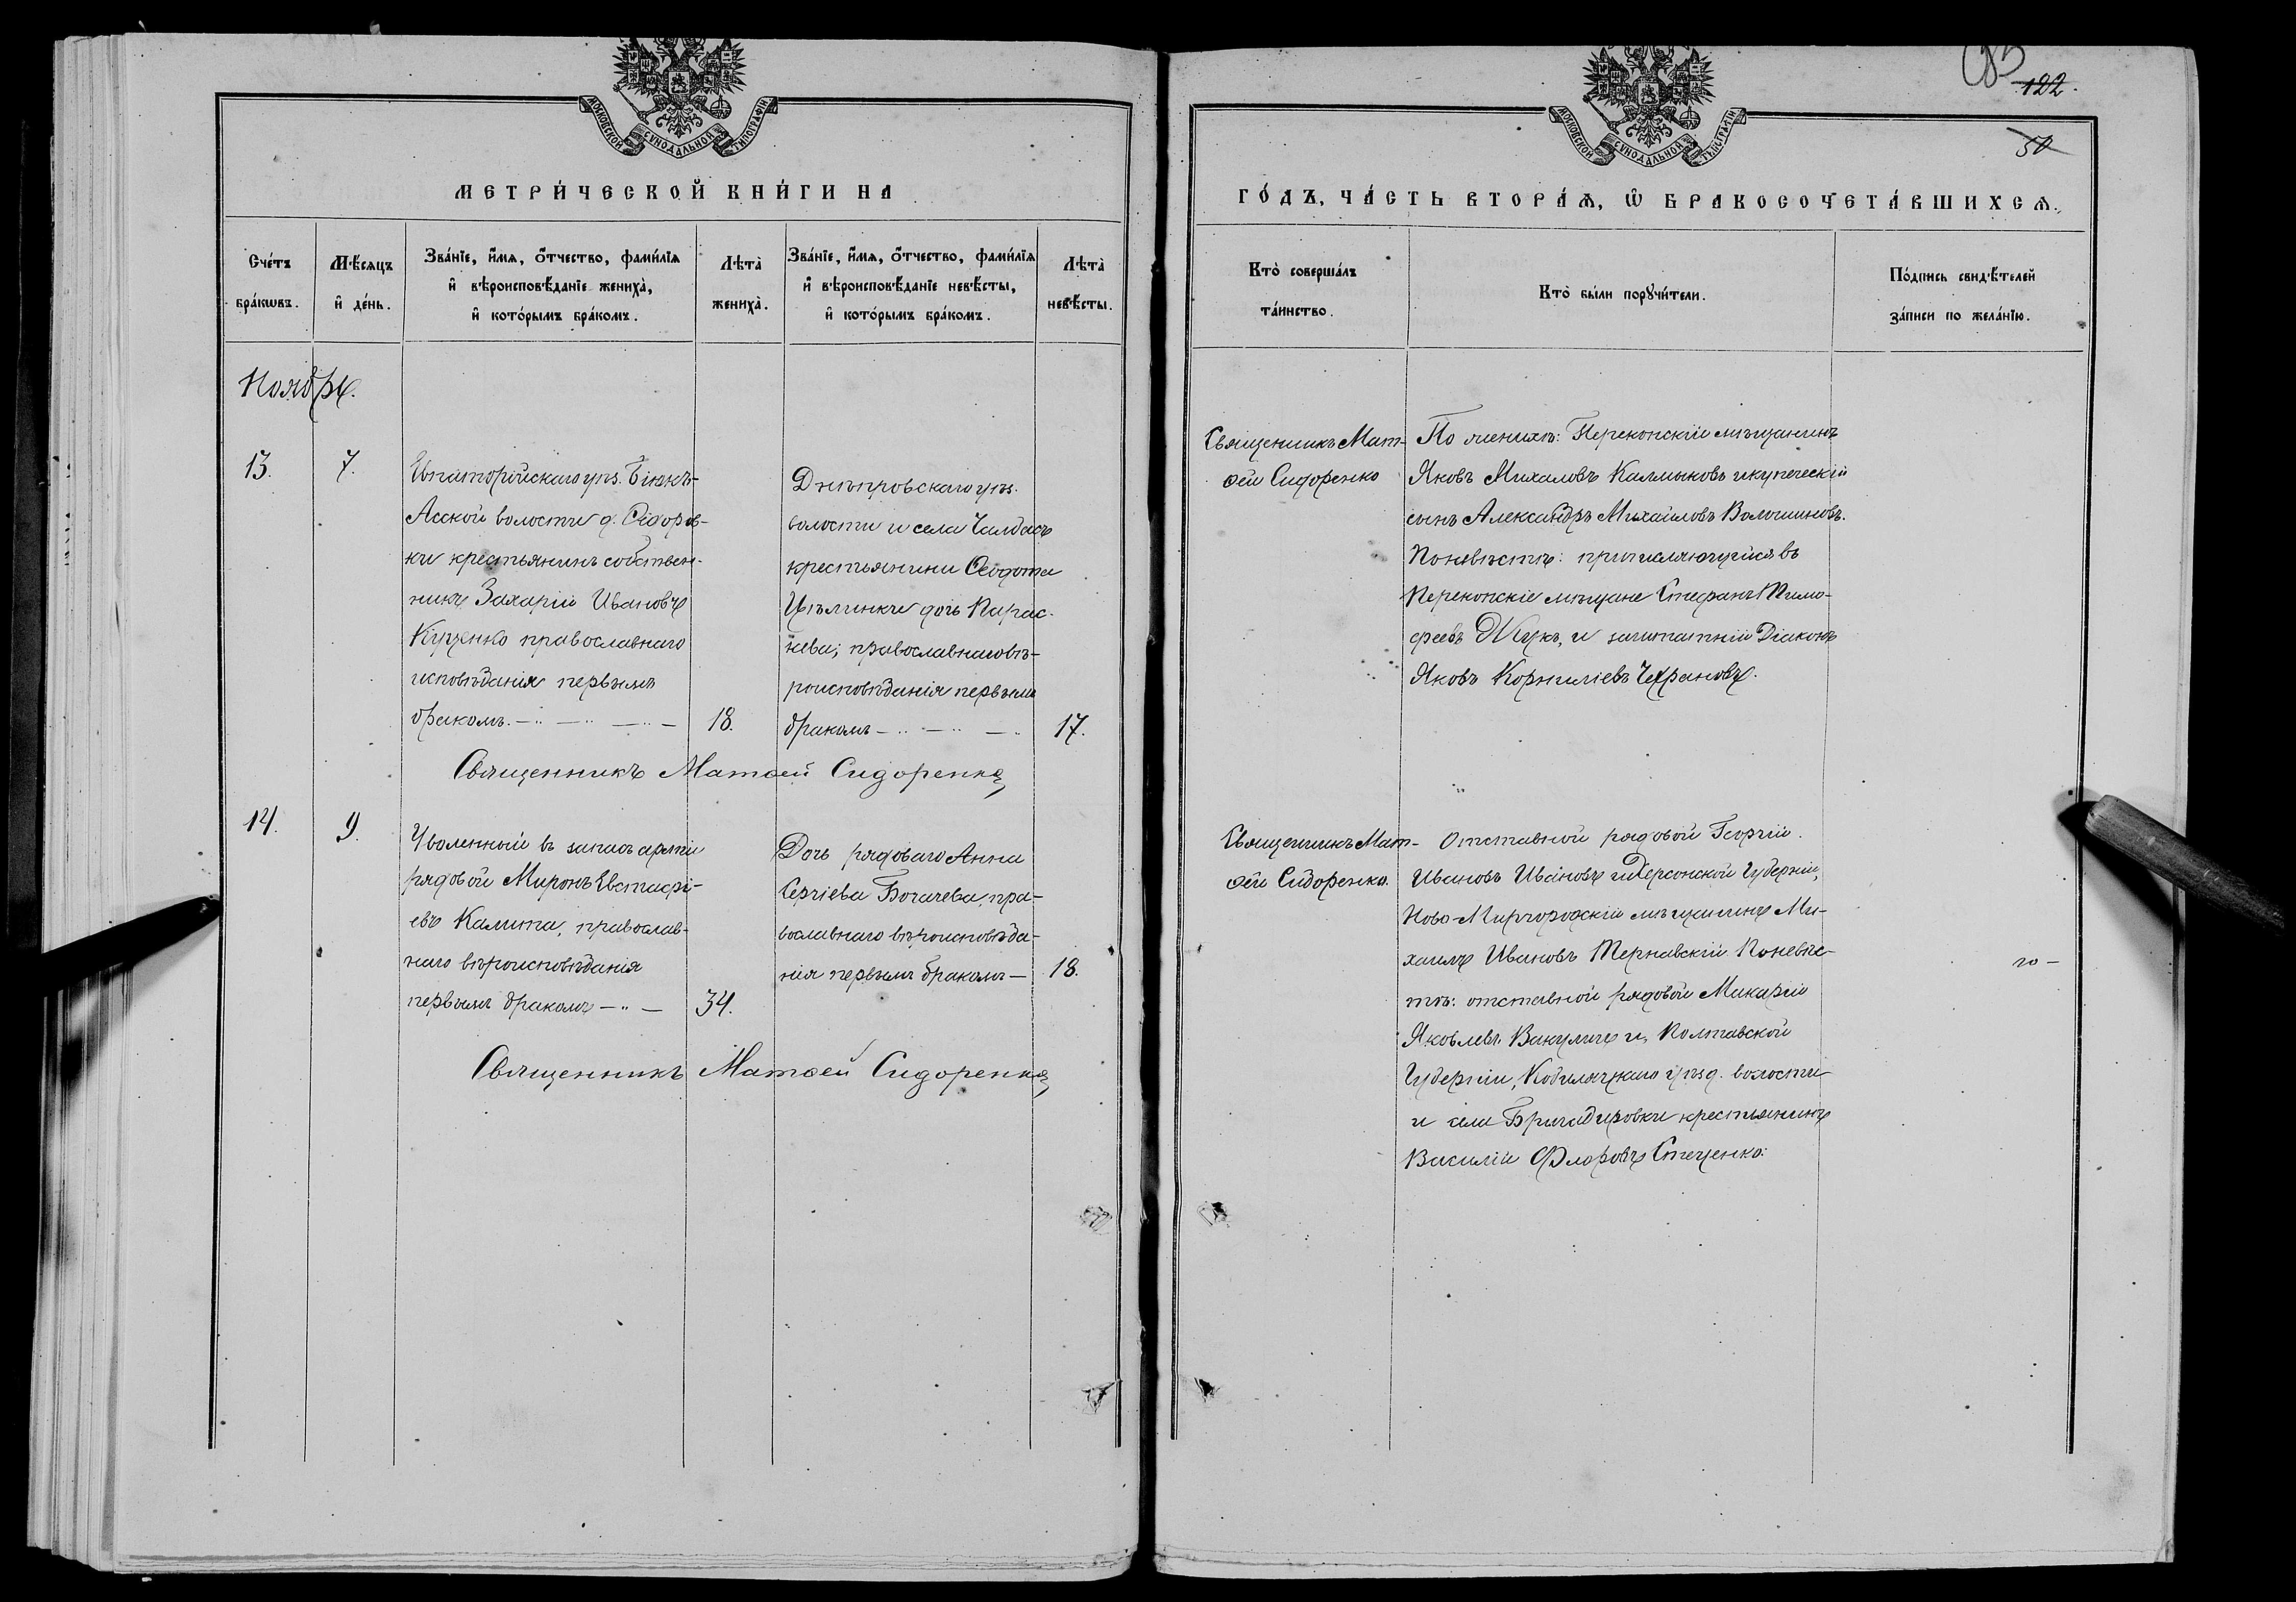 МОСКОВСКОЙ СѴНОДАЛЬНОЙ ТИПОГРАФІИ
МЕТРИ́ЧЕСКОЙ КНИ́ГИ НА
Сче́тъ бра́кѡвъ.
Мѣ́сяцъ и҆ де́нь.
Зва́нїе, и҆́мя, ѻ҆́тчество, фами́лїя
и҆ вѣроисповѣ́данїе жениха̀,
и҆ кото́рымъ бра́комъ.
Лѣта̀ жениха̀.
Зва́нїе, и҆́мя, ѻ҆́тчество, фами́лїя
и҆ вѣроисповѣ́данїе невѣ́сты,
и҆ кото́рымъ бра́комъ.
Лѣта̀ невѣ́сты.
Ноябрь.
13.
7.
Евпаторійскаго уѣз. Біюкъ-
Асской волости д. Сидоров-
ки крестьянинъ собствен-
никъ Захарій Ивановъ
Куценко православнаго
исповѣданія первымъ
бракомъ.
18.
Днѣпровскаго уѣз.
волости и села Чалбасъ
крестьянина Ѳеодота
Цѣлинки дочь Парас-
кева; православнаго вѣ-
роисповѣданія первымъ
бракомъ
17.
Священникъ Матѳей Сидоренко
14.
9.
Уволенный въ запасъ арміи
рядовой Миронъ Евстафі-
евъ Калита, православ-
наго вѣроисповѣданія
первымъ бракомъ
34.
Дочь рядоваго Анна
Сергіева Богачева, пра-
вославнаго вѣроисповѣда-
нія первымъ бракомъ
18.
Священникъ Матѳей Сидоренко
122.
50
МОСКОВСКОЙ СѴНОДАЛЬНОЙ ТИПОГРАФІИ
ГО́ДЪ, ЧА́СТЬ ВТОРА́Ѧ, Ѿ БРАКОСОЧЕТА́ВШИХСѦ.
Кто̀ соверша́лъ
та́инство.
Кто̀ бы́ли порꙋчи́тели.
По́дпись свидѣ́телей
за́писи по жела́нїю.
Священникъ Мат-
ѳей Сидоренко
По женихѣ: Перекопскій мѣщанинъ
Яковъ Михаловъ Калмыковъ и купеческій
сынъ Александръ Михайловъ Волошиновъ.
По невѣстѣ: причисляющійся въ
Перекопскіе мѣщане Стефанъ Тимо-
феевъ Жукъ, и заштатній Діаконъ
Яковъ Корниліевъ Чехрановъ.
Священникъ Мат-
ѳей Сидоренко.
Отставной рядовой Георгій
Ивановъ Ивановъ и Херсонской Губерніи,
Ново-Миргородскій мѣщанинъ Ми-
хаилъ Ивановъ Тернавскій По невѣс-
тѣ: отставной рядовой Макарій
Яковлевъ Вакуличъ и, Полтавской
Губерніи, Кобиляцкаго уѣзд. волости
и села Бригадировки крестьянинъ
Василій Флоровъ Стеценко.